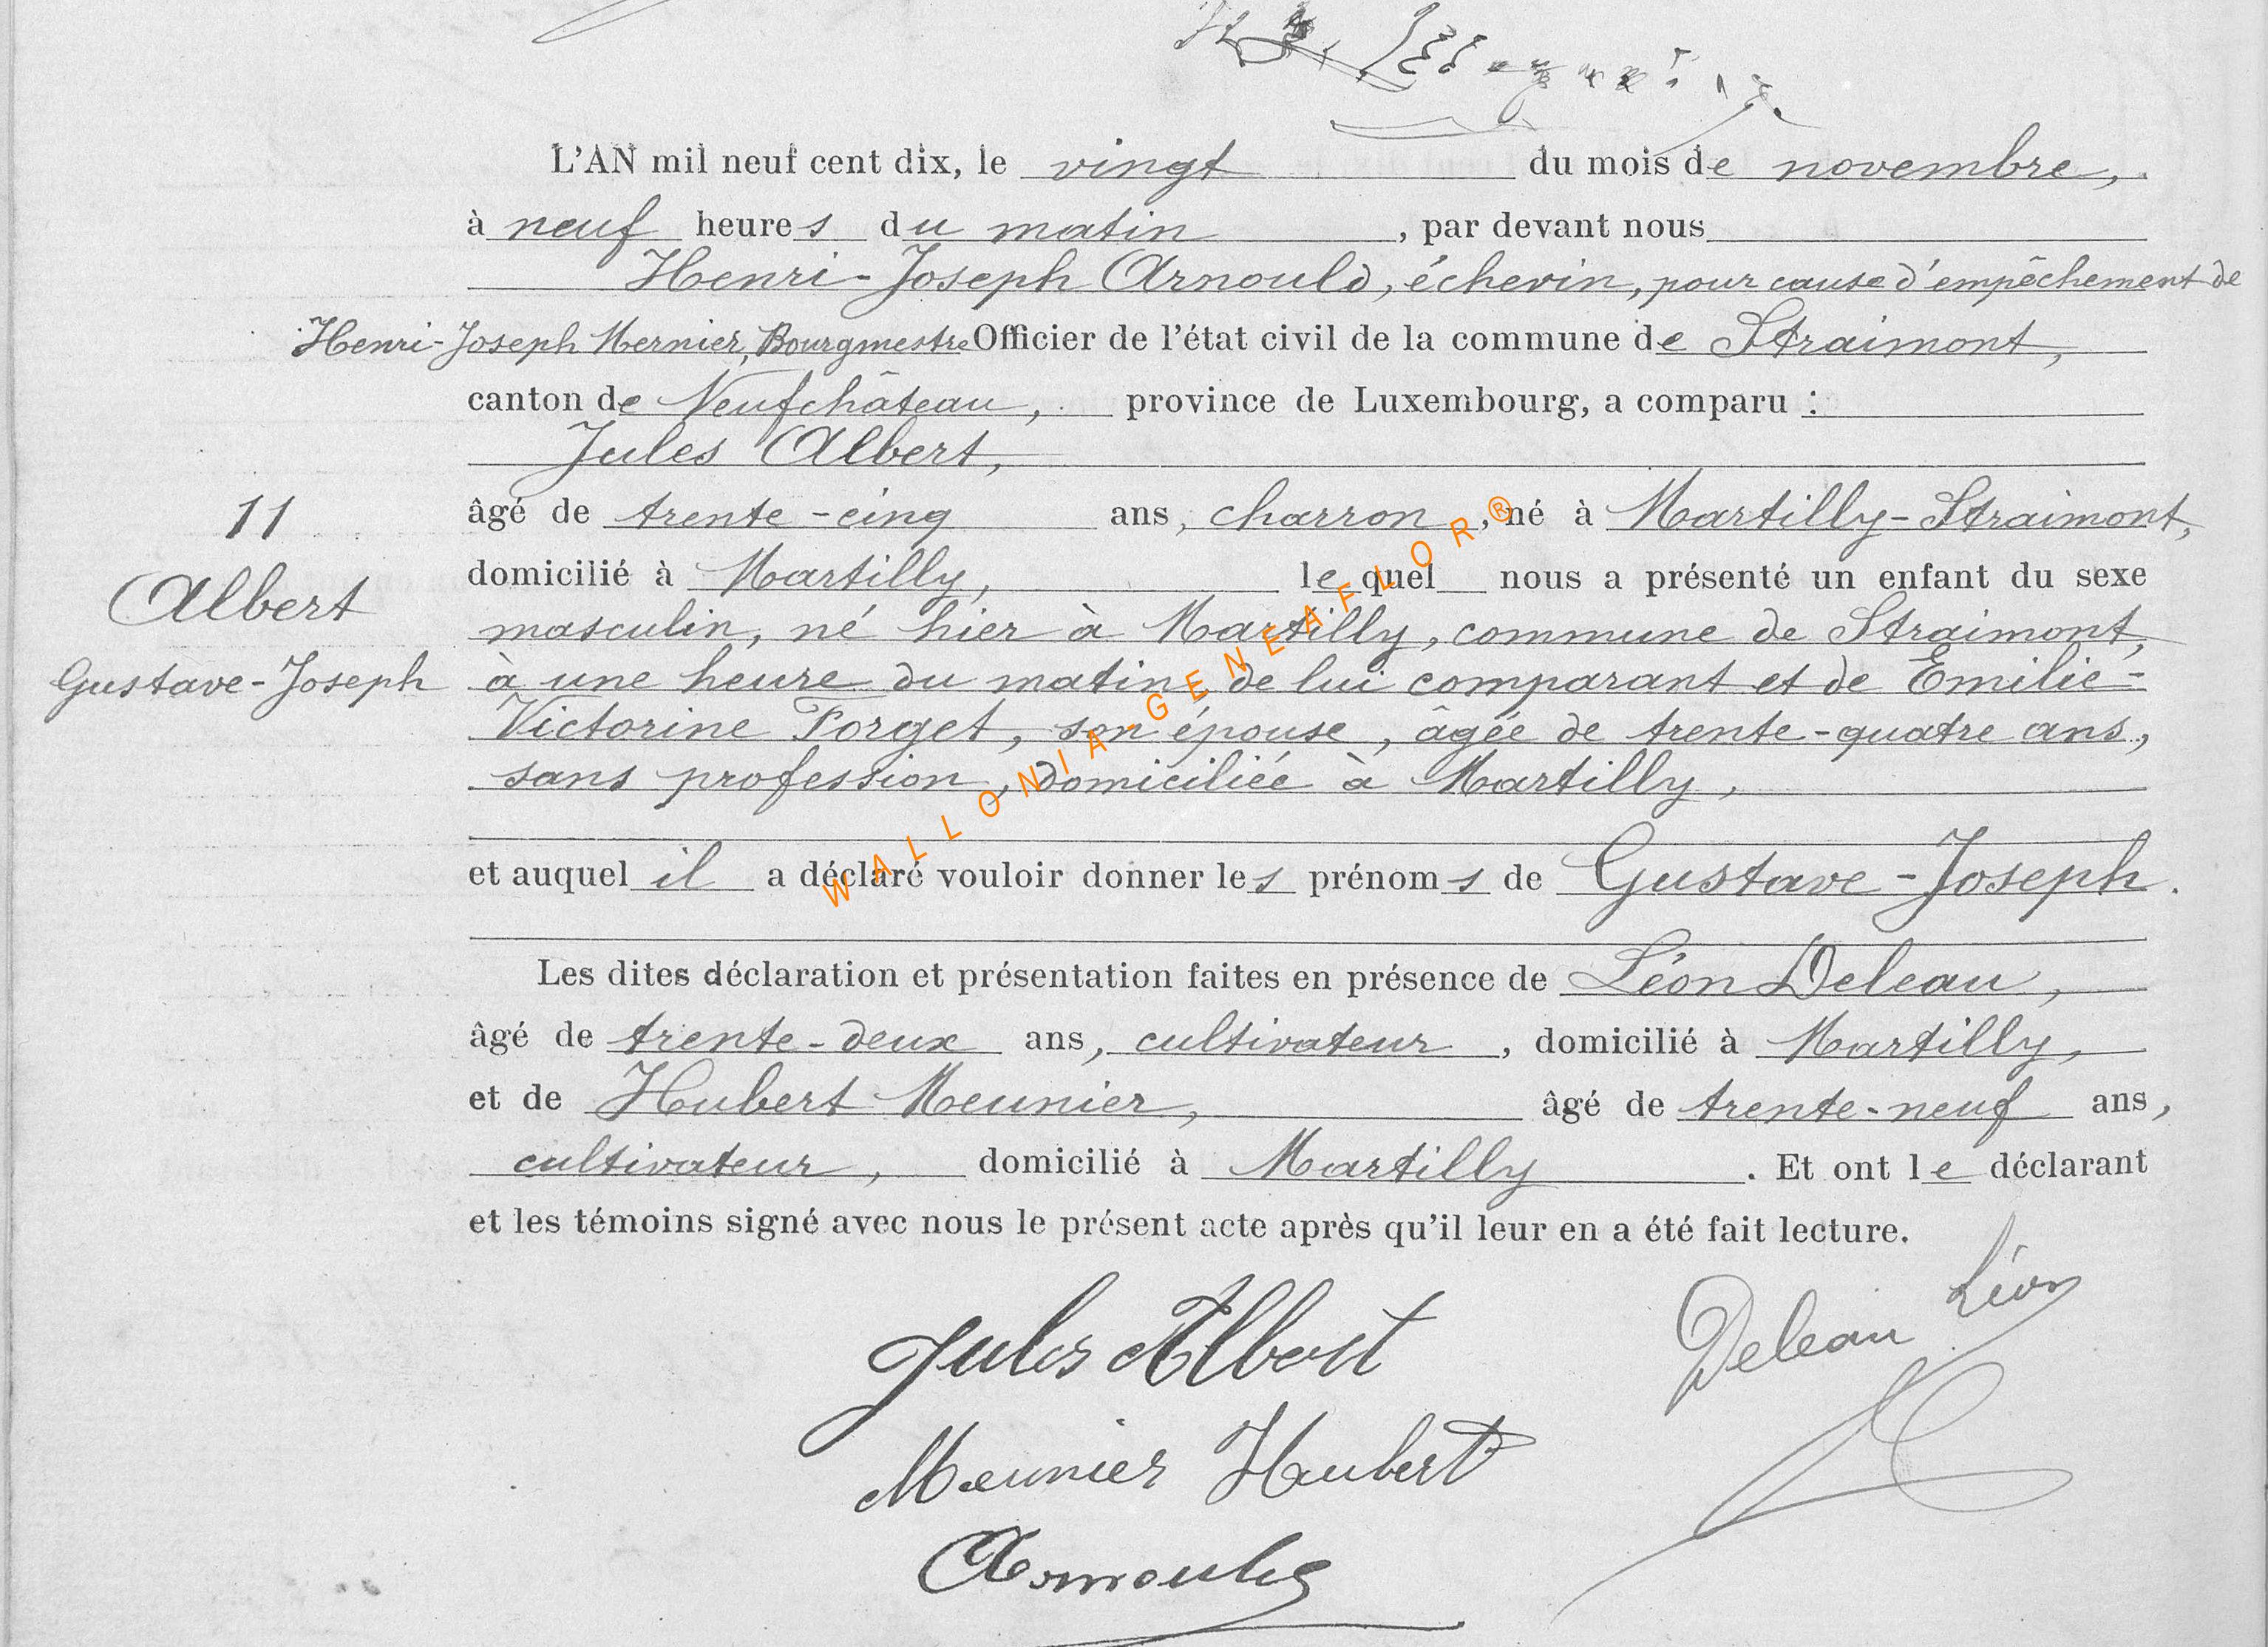 L'AN mil neuf cent dix, le vingt du mois de novembre,
à neuf heures du matin, par devant nous
Henri-Joseph Arnould, échevin, pour cause d'empêchement de
Henri-Joseph Mernier, Bourgmestre Officier de l'état civil de la commune de Straimont,
canton de Neufchâteau, province de Luxembourg, a comparu :
Jules Albert,
11
âgé de trente-cinq ans, charron, né à Martilly-Straimont,
Albert
domicilié à Martilly, lequel nous a présenté un enfant du sexe
masculin, né hier à Martilly, commune de Straimont,
Gustave-Joseph
à une heure du matin, de lui comparant et de Emilie-
Victorine Forget, son épouse, âgée de trente-quatre ans,
sans profession, domiciliée à Martilly,
et auquel il a déclaré vouloir donner les prénoms de Gustave-Joseph.
Les dites déclaration et présentation faites en présence de Léon Deleau,
âgé de trente-deux ans, cultivateur, domicilié à Martilly,
et de Hubert Meunier, âgé de trente-neuf ans,
cultivateur, domicilié à Martilly. Et ont le déclarant
et les témoins signé avec nous le présent acte après qu'il leur en a été fait lecture.
Jules Albert
Deleau Léon
Meunier Hubert
Arnould
WALLONIA-GENEAFLOR®